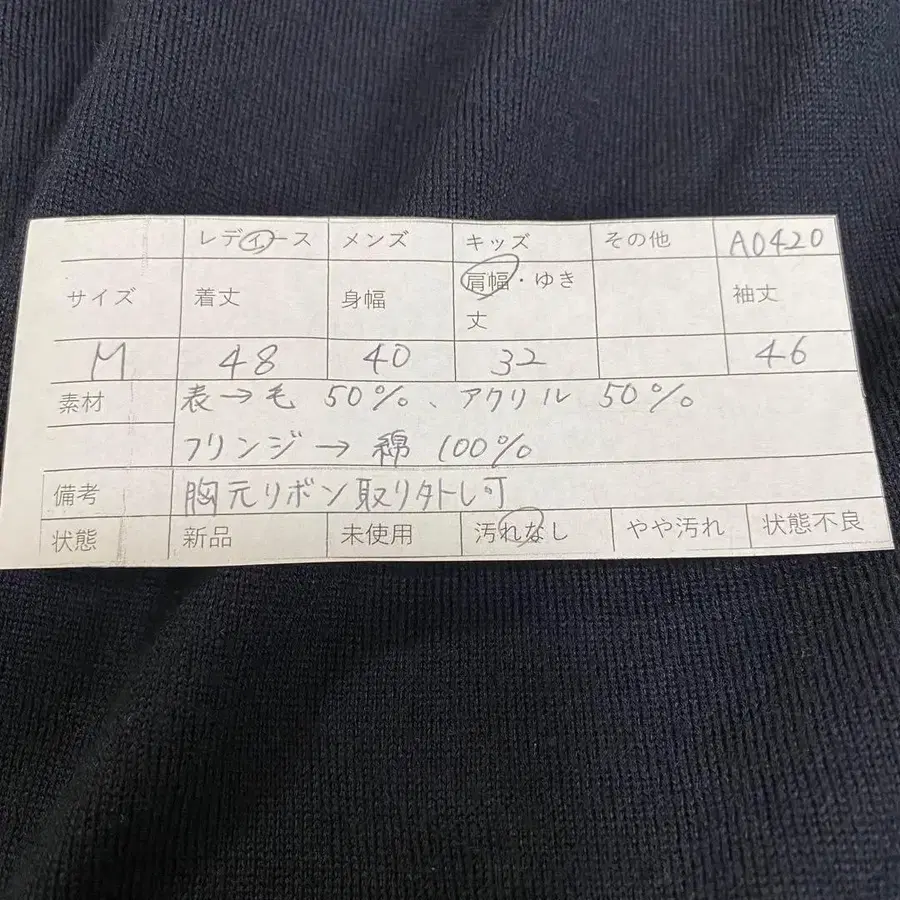 レディース メンズ キッズ その他 A0420
サイズ 着丈 身幅 肩幅・ゆき丈 袖丈
M 48 40 32 46
素材 表→毛 50%、アクリル 50%
フリンジ→綿 100%
備考 胸元リボン取り外し可
状態 新品 未使用 汚れなし やや汚れ 状態不良